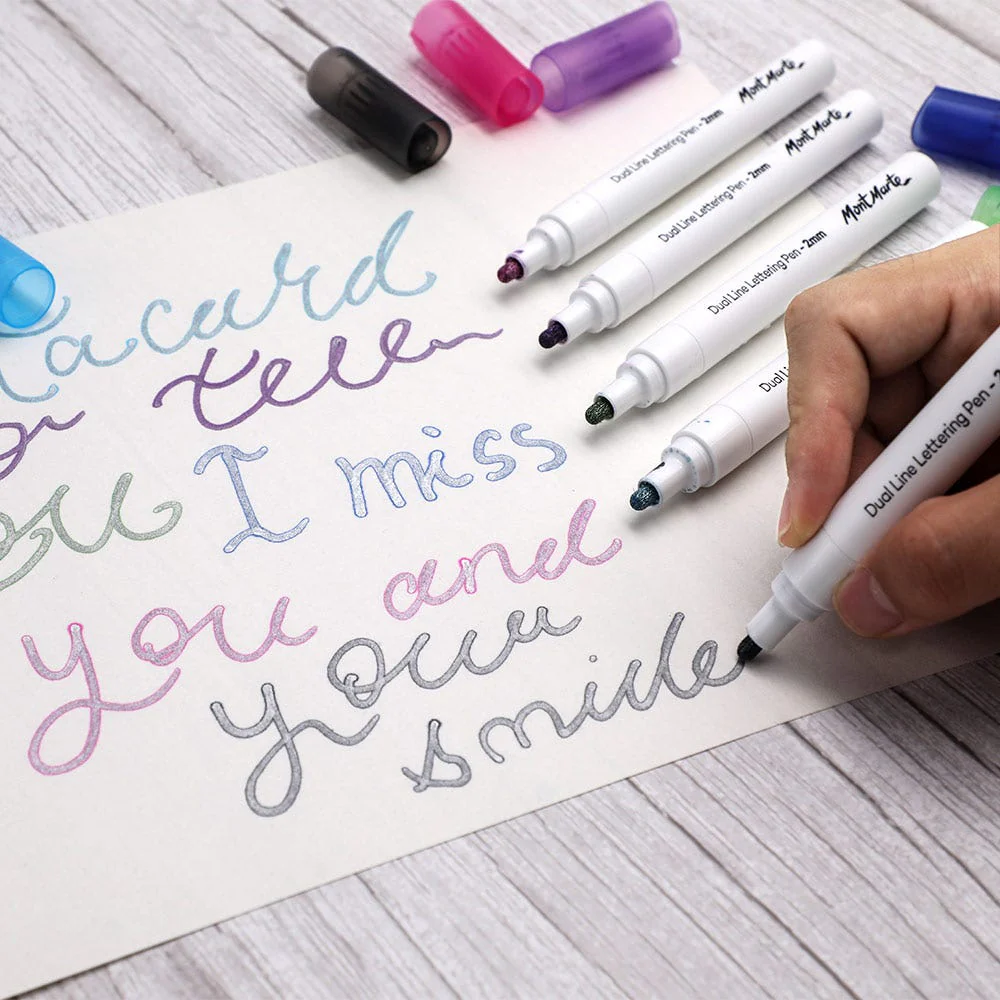 a card
tell
you I miss
you and
your
smile
Mont Marte
Dual Line Lettering Pen - 2mm
Mont Marte
Dual Line Lettering Pen - 2mm
Mont Marte
Dual Line Lettering Pen - 2mm
Dual Li
Dual Line Lettering Pen - 2